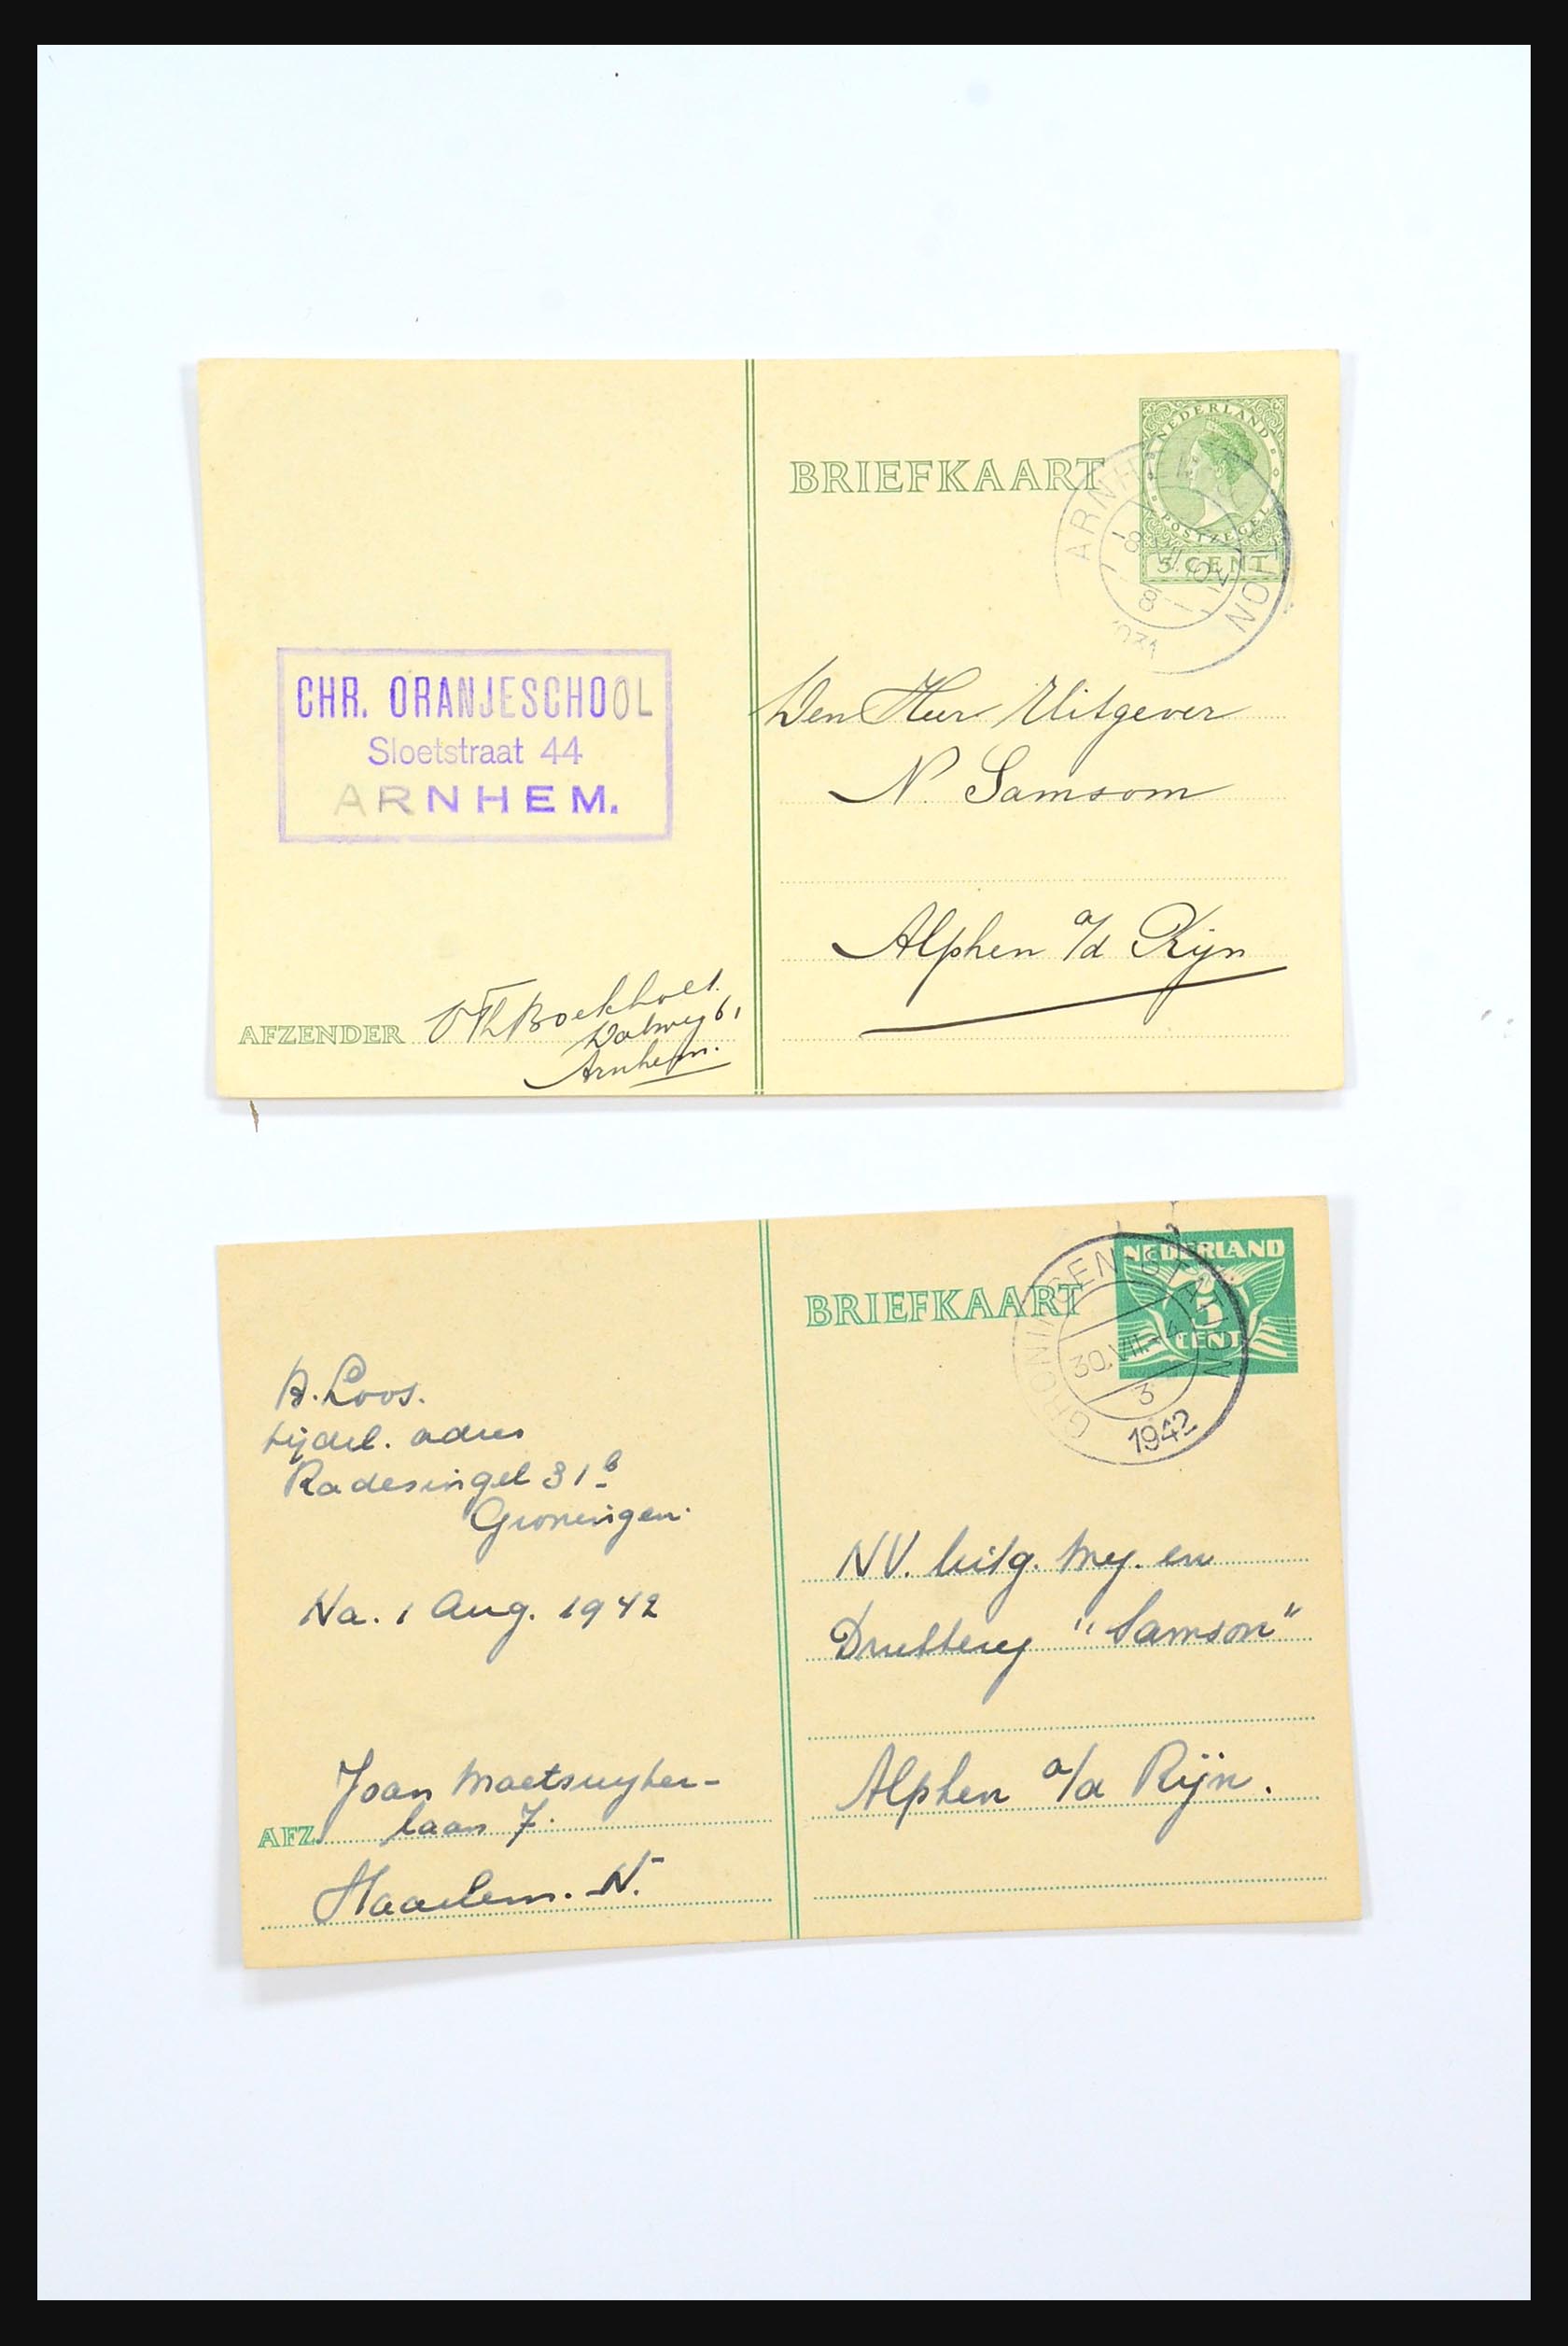 BRIEFKAART
NEDERLAND
POSTZEGEL
5 CENT
ARNHEM
Den Heer Uitgever
N. Samsom
Alphen a/d Rijn
CHR. ORANJESCHOOL
Sloetstraat 44
ARNHEM.
AFZENDER
Boekholt.
Dalweg 61
Arnhem.
BRIEFKAART
NEDERLAND
5
CENT
GRONINGEN-STATION
30.VII.-4
3
1942
A. Loos.
tijdel. adres
Radesingel 31b
Groningen.
Na. 1 Aug. 1942
Joan Maetsuyker-
laan 7.
AFZ.
Haarlem. N.
NV. Uitg. Mij. en
Drukkerij "Samson"
Alphen a/d Rijn.